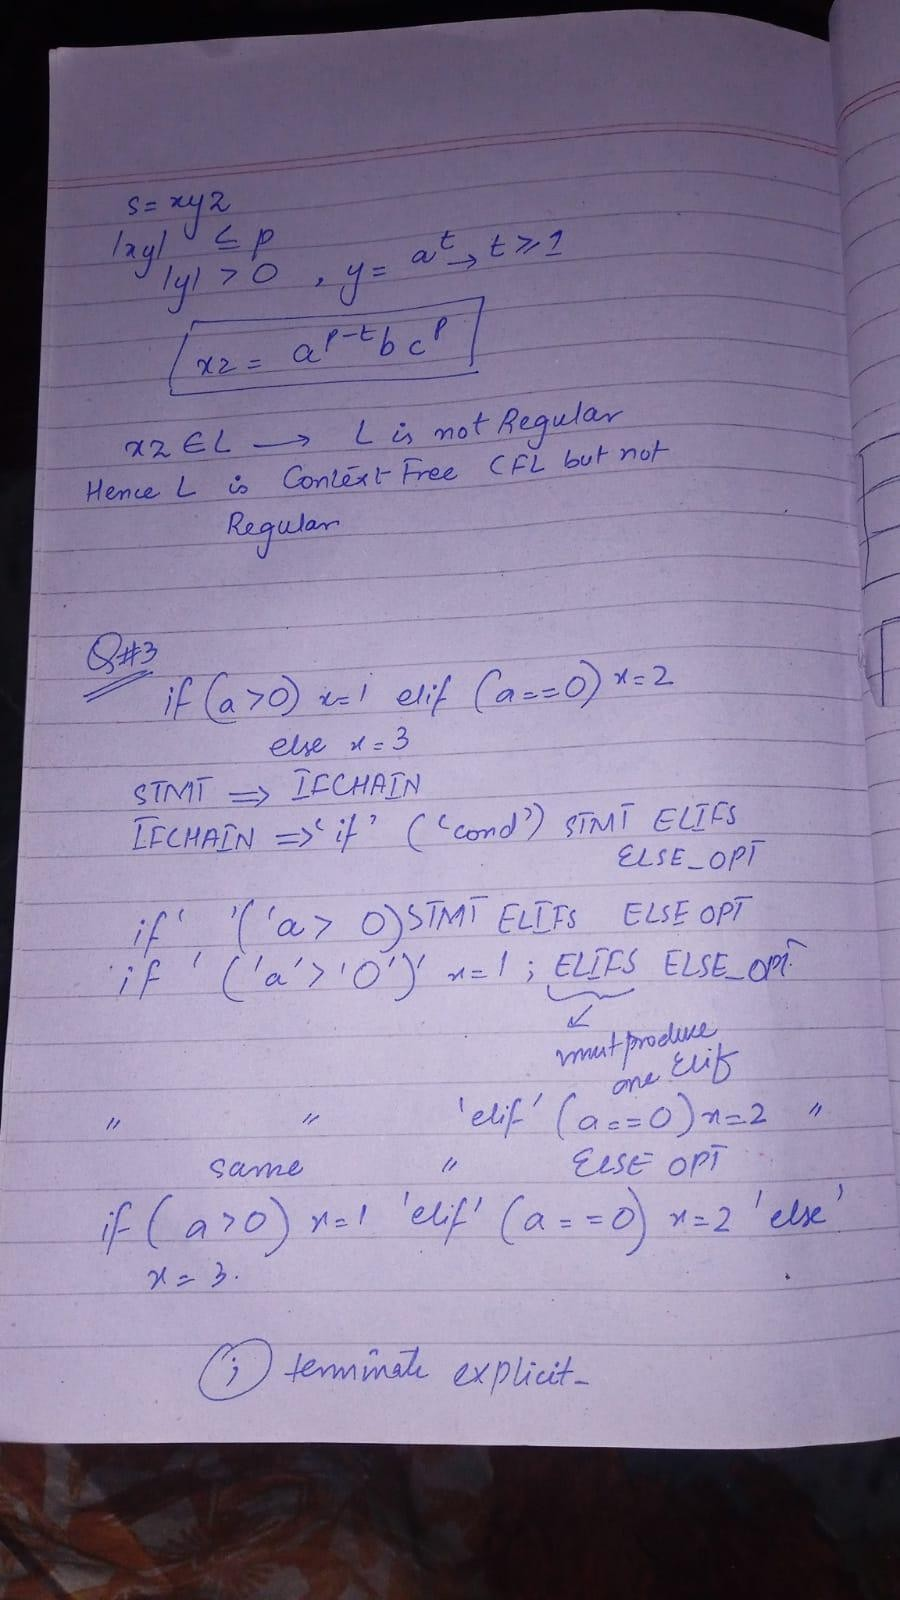 s = xyz
|xy| ≤ p
|y| > 0 , y = a^t → t ≥ 1
xz = a^{p-t} b c^p
xz ∈ L → L is not Regular
Hence L is Context Free CFL but not
Regular
Q#3
if (a>0) x=1 elif (a==0) x=2
else x=3
STMT ⇒ IFCHAIN
IFCHAIN ⇒ 'if' ('cond') STMT ELIFS
ELSE_OPT
if' '('a > 0) STMT ELIFS ELSE OPT
'if ' ('a'>'0')' x=1 ; ELIFS ELSE_OPT
↙
must produce
one Elif
" " 'elif' (a==0) x=2 "
same " ELSE OPT
if (a>0) x=1 'elif' (a==0) x=2 'else'
x=3.
; terminate explicit-